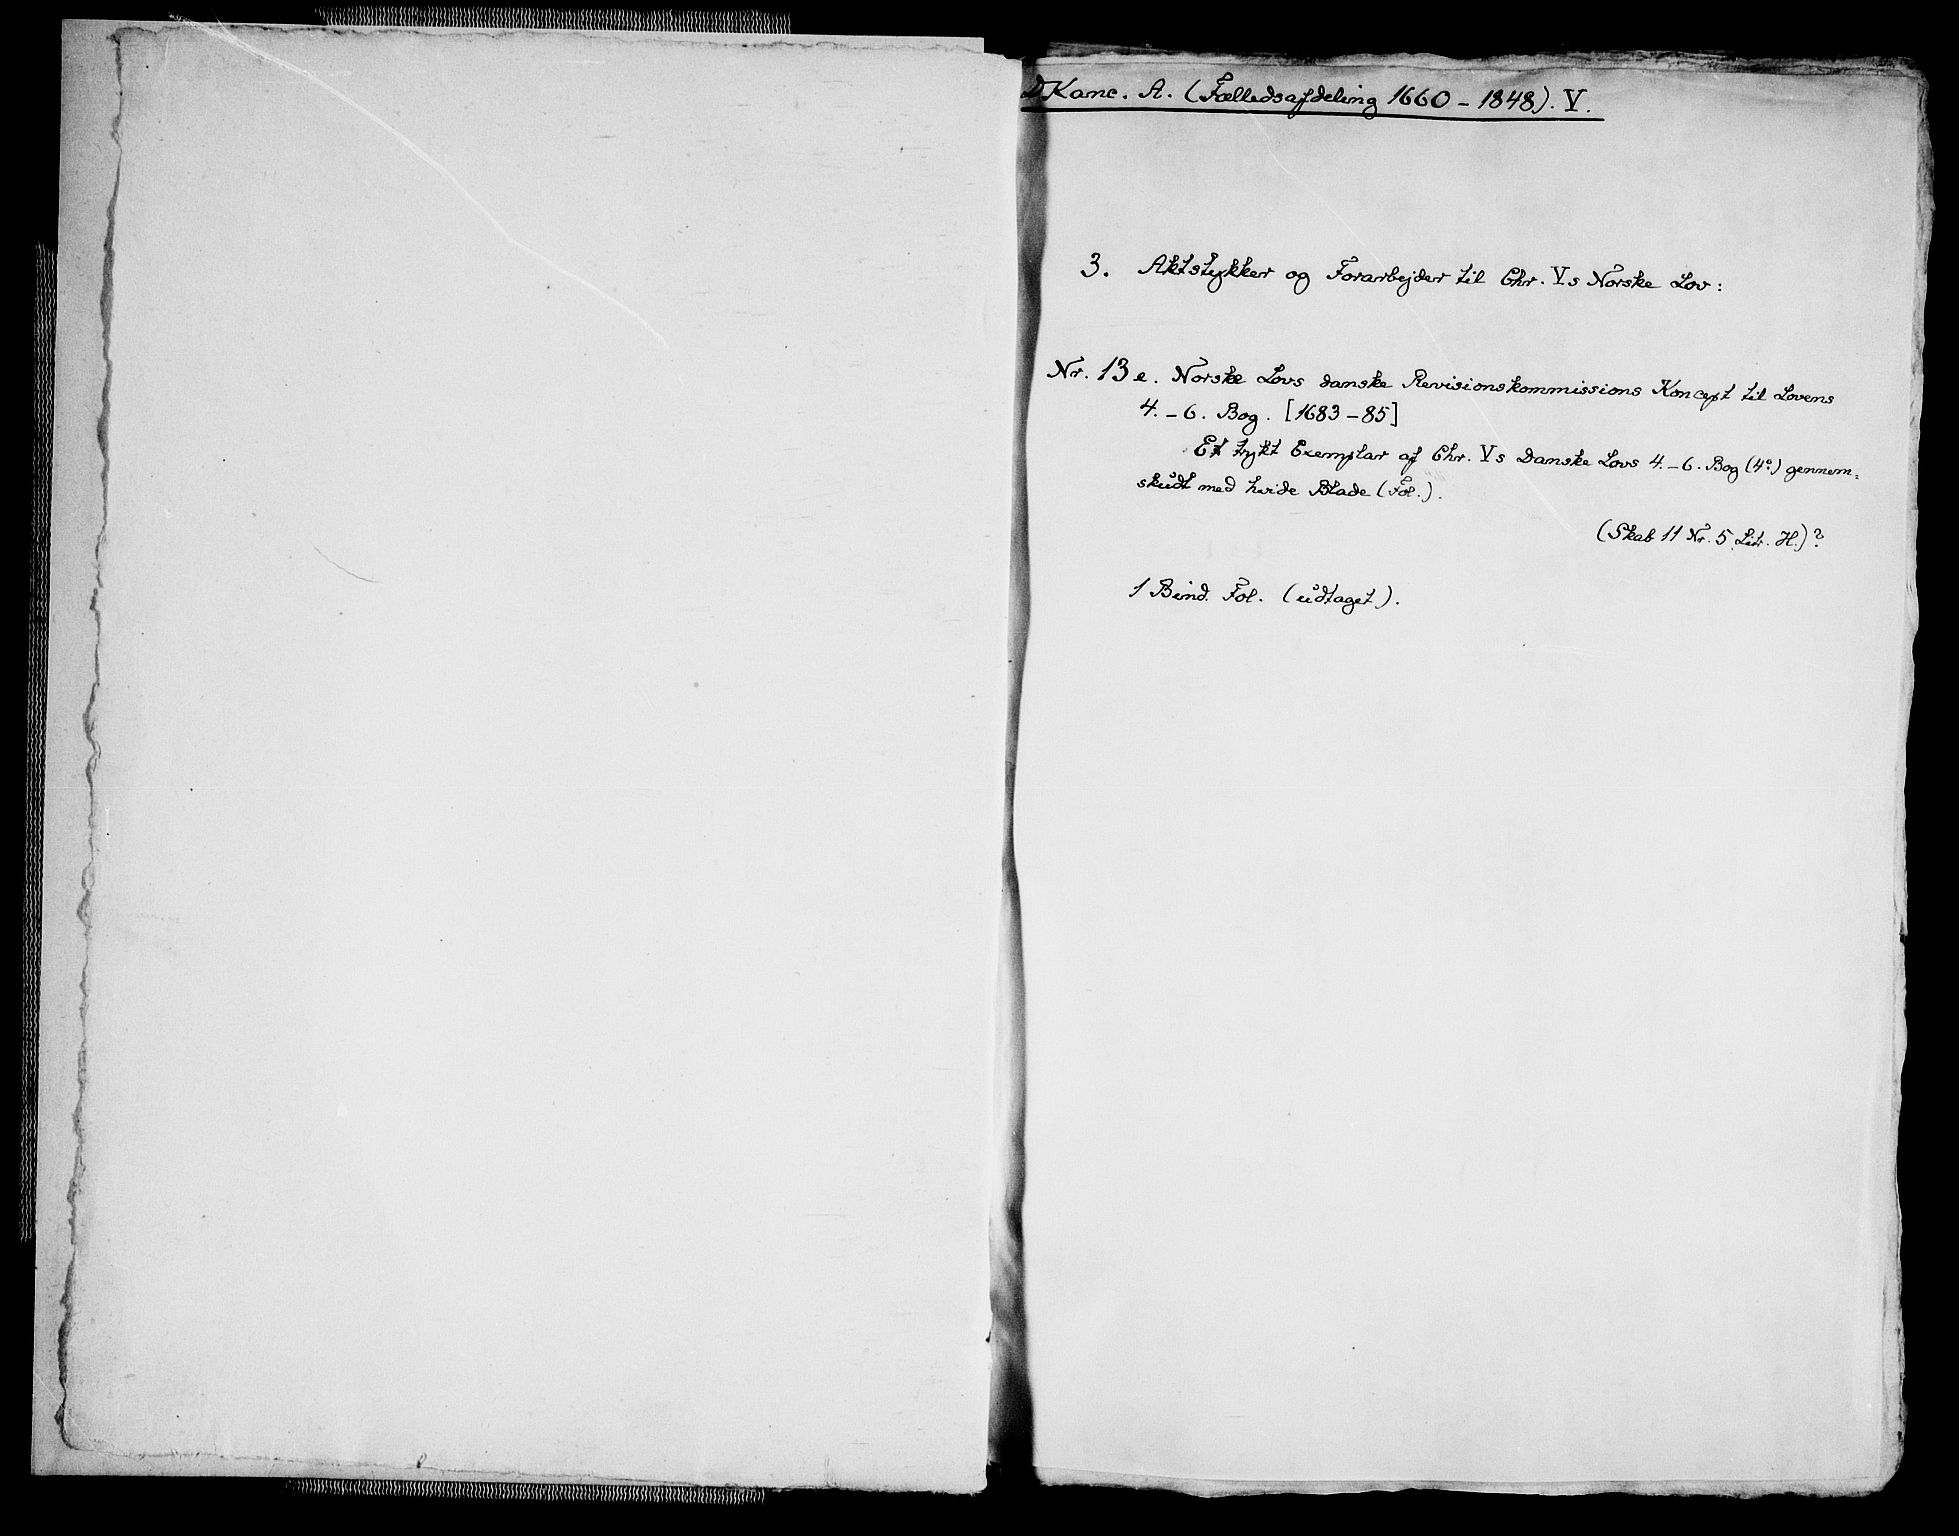 DKanc. A. (Fælledsafdeling 1660 - 1848). V.
3. Aktstykker og Forarbejder til Chr. Vs Norske Lov:
Nr. 13 e. Norske Lovs danske Revisionskommissions Koncept til Lovens
4. - 6. Bog. [1683 - 85]
Et trykt Exemplar af Chr. Vs Danske Lovs 4. - 6. Bog (4°) gennem-
skudt med hvide Blade (Fol.).
(Skab 11 Nr. 5 Litr. H.)?
1 Bind. Fol. (udtaget).